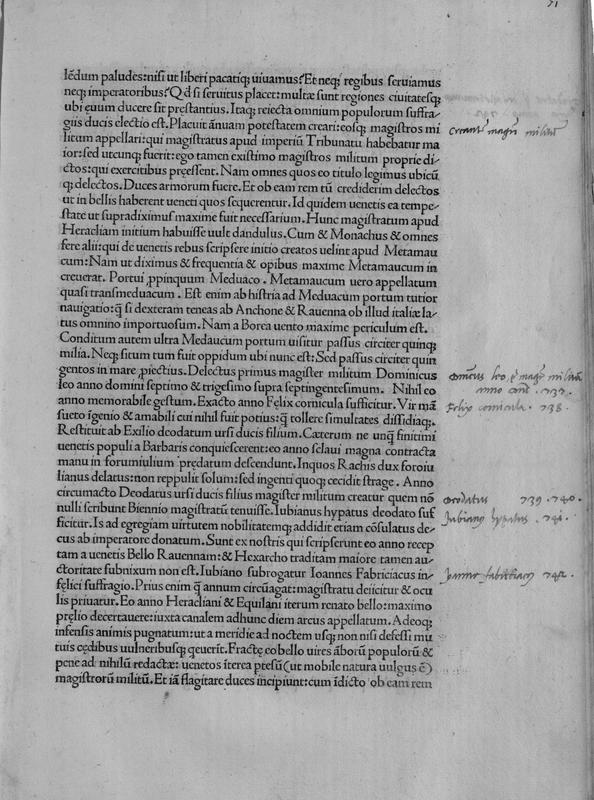 lēdum paludes: nisi ut liberi pacatiq; uiuamus? Et neq; regibus seruiamus
neq; imperatoribus? Q d si seruitus placet: multæ sunt regiones ciuitatesq;
ubi ęuum ducere sit pręstantius. Itaq; reiecta omnium populorum suffra⸗
giis ducis electio est. Placuit ānuam potestatem creari: eosq; magistros mi
litum appellari: qui magistratus apud imperiū Tribunatu habebatur ma
ior: sed utcunq; fuerit: ego tamen existimo magistros militum proprie di⸗
ctos: qui exercitibus pręessent. Nam omnes quos eo titulo legimus ubicū
q; delectos. Duces armorum fuere. Et ob eam rem tū crediderim delectos
ut in bellis haberent ueneti quos sequerentur. Id quidem uenetis ea tempe⸗
state ut supradiximus maxime fuit necessarium. Hunc magistratum apud
Heracliam initium habuisse uult dandulus. Cum & Monachus & omnes
fere alii: qui de uenetis rebus scripsere initio creatos uelint apud Metamau
cum: Nam ut diximus & frequentia & opibus maxime Metamaucum in
creuerat. Portui ꝓpinquum Meduaco. Metamaucum uero appellatum
quasi transmeduacum. Est enim ab histria ad Meduacum portum tutior
nauigatio: q̄ si dexteram teneas ab Anchone & Rauenna ob illud italiæ la⸗
tus omnino importuosum. Nam a Borea uento maxime periculum est.
Conditum autem ultra Medaucum portum uisitur passus circiter quinq;
milia. Neq; situm tum fuit oppidum ubi nunc est: Sed passus circiter quin
gentos in mare ꝓiectius. Delectus primus magister militum Dominicus
leo anno domini septimo & trigesimo supra septingentesimum. Nihil eo
anno memorabile gestum. Exacto anno Fęlix cornicula sufficitur. Vir mā
sueto īgenio & amabili cui nihil fuit potius: q̄ tollere simultates dissidiaq;.
Restituit ab Exilio deodatum ursi ducis filium. Cæterum ne unq̄ finitimi
uenetis populi a Barbaris conquiescerent: eo anno sclaui magna contracta
manu in forumiulium prędatum descendunt. Inquos Rachis dux foroiu
lianus delatus: non reppulit solum: sed ingenti quoq; cecidit strage. Anno
circumacto Deodatus ursi ducis filius magister militum creatur quem nō
nulli scribunt Biennio magistratū tenuisse. Iubianus hypatus deodato suf
ficitur. Is ad egregiam uirtutem nobilitatemq; addidit etiam cōsulatus de⸗
cus ab imperatore donatum. Sunt ex nostris qui scripserunt eo anno recep
tam a uenetis Bello Rauennam: & Hexarcho traditam maiore tamen au⸗
ctoritate subnixum non est. Iubiano subrogatur Ioannes Fabriciacus in⸗
fęlici suffragio. Prius enim q̄ annum circūagat: magistratu deiicitur & ocu
lis priuatur. Eo anno Heracliani & Equilani iterum renato bello: maximo
prælio decertauere: iuxta canalem adhunc diem arcus appellatum. Adeoq;
infensis animis pugnatum: ut a meridie ad noctem usq; non nisi defessi mu
tuis cędibus uulneribusq; quieuerīt. Fractę eo bello uires āborū populorū &
pene ad nihilū redactæ: uenetos īterea ptesū (ut mobile natura uulgus ē)
magistrorū militū. Et iā flagitare duces incipiunt: cum īdicto ob eam rem
Felix cornicula . 738.
Deodatus 739. 740.
Jubianus hypatus . 741.